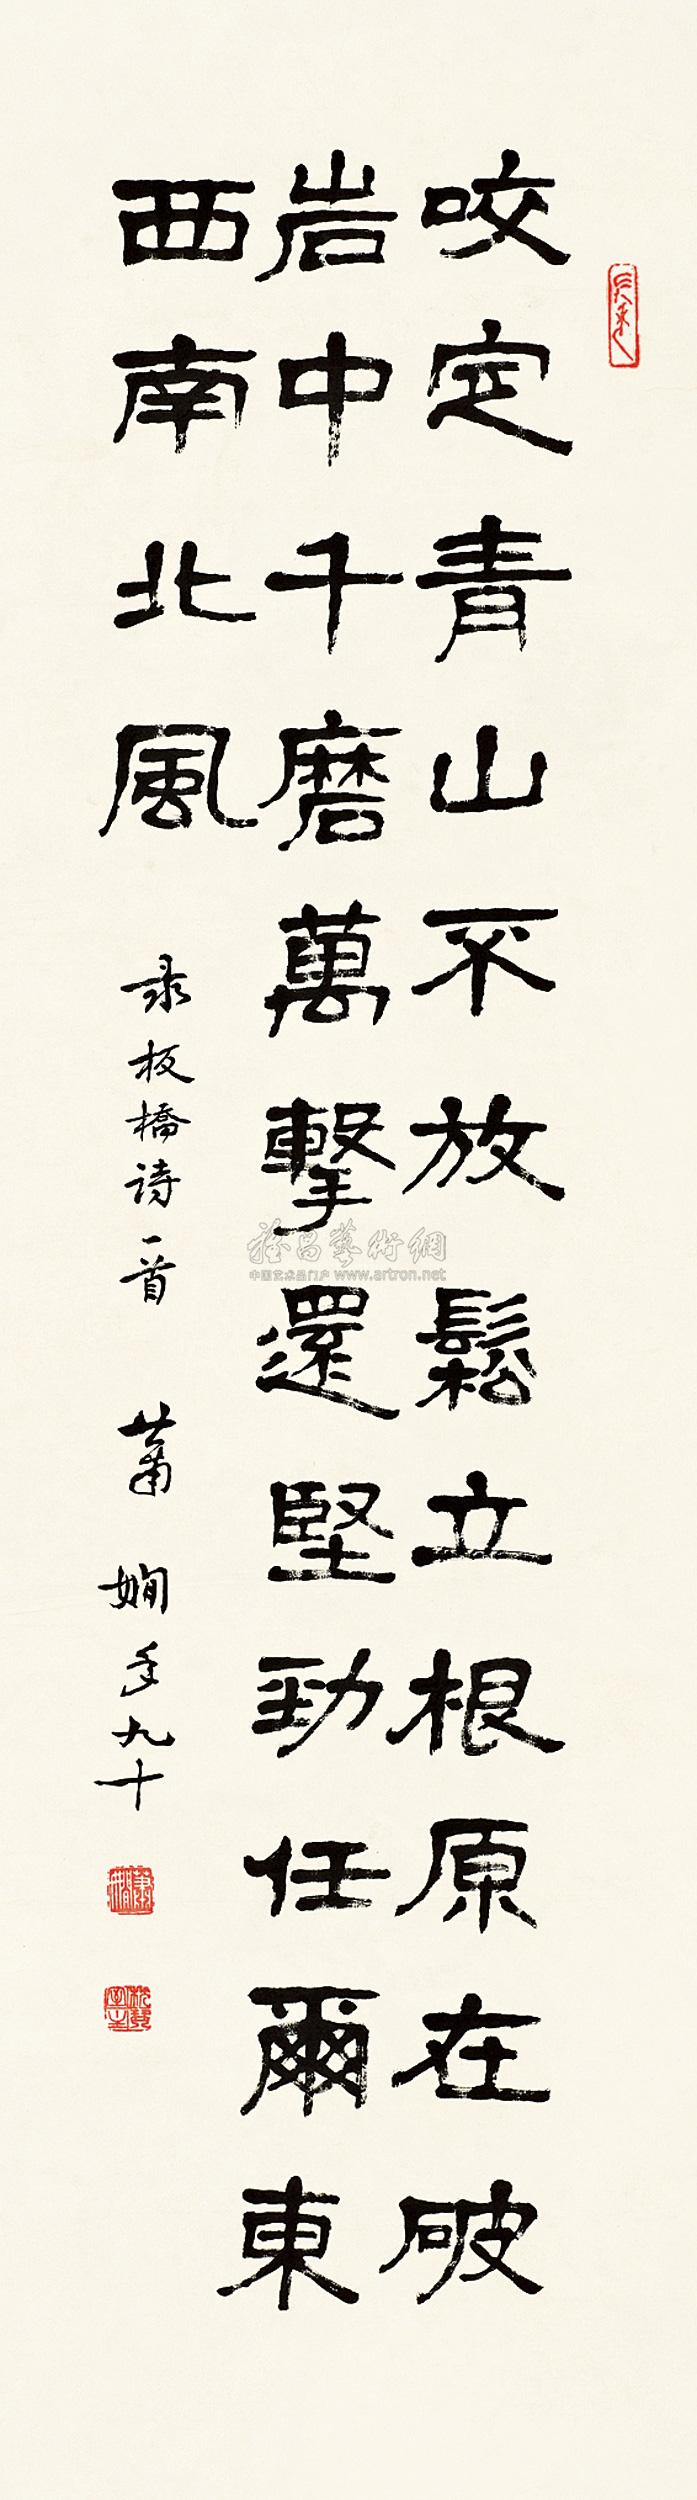 咬定青山不放鬆立根原在破
岩中千磨萬擊還堅勁任爾東
西南北風
录板橋诗一首 蕭嫻年九十
雅昌藝術網
中国艺术品门户 www.artron.net
蕭嫻